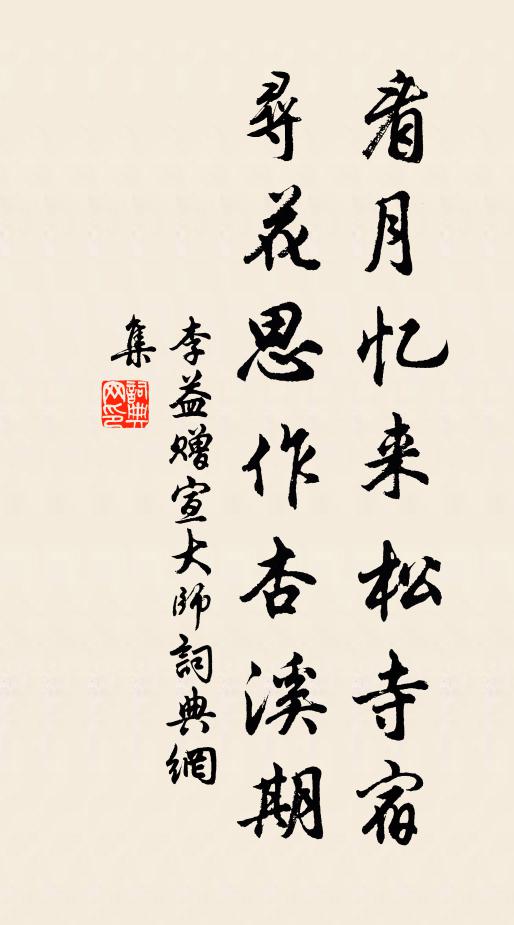 看月忆来松寺宿
尋花思作杏溪期
李益赠宣大师詞典網
集
詞典
网印